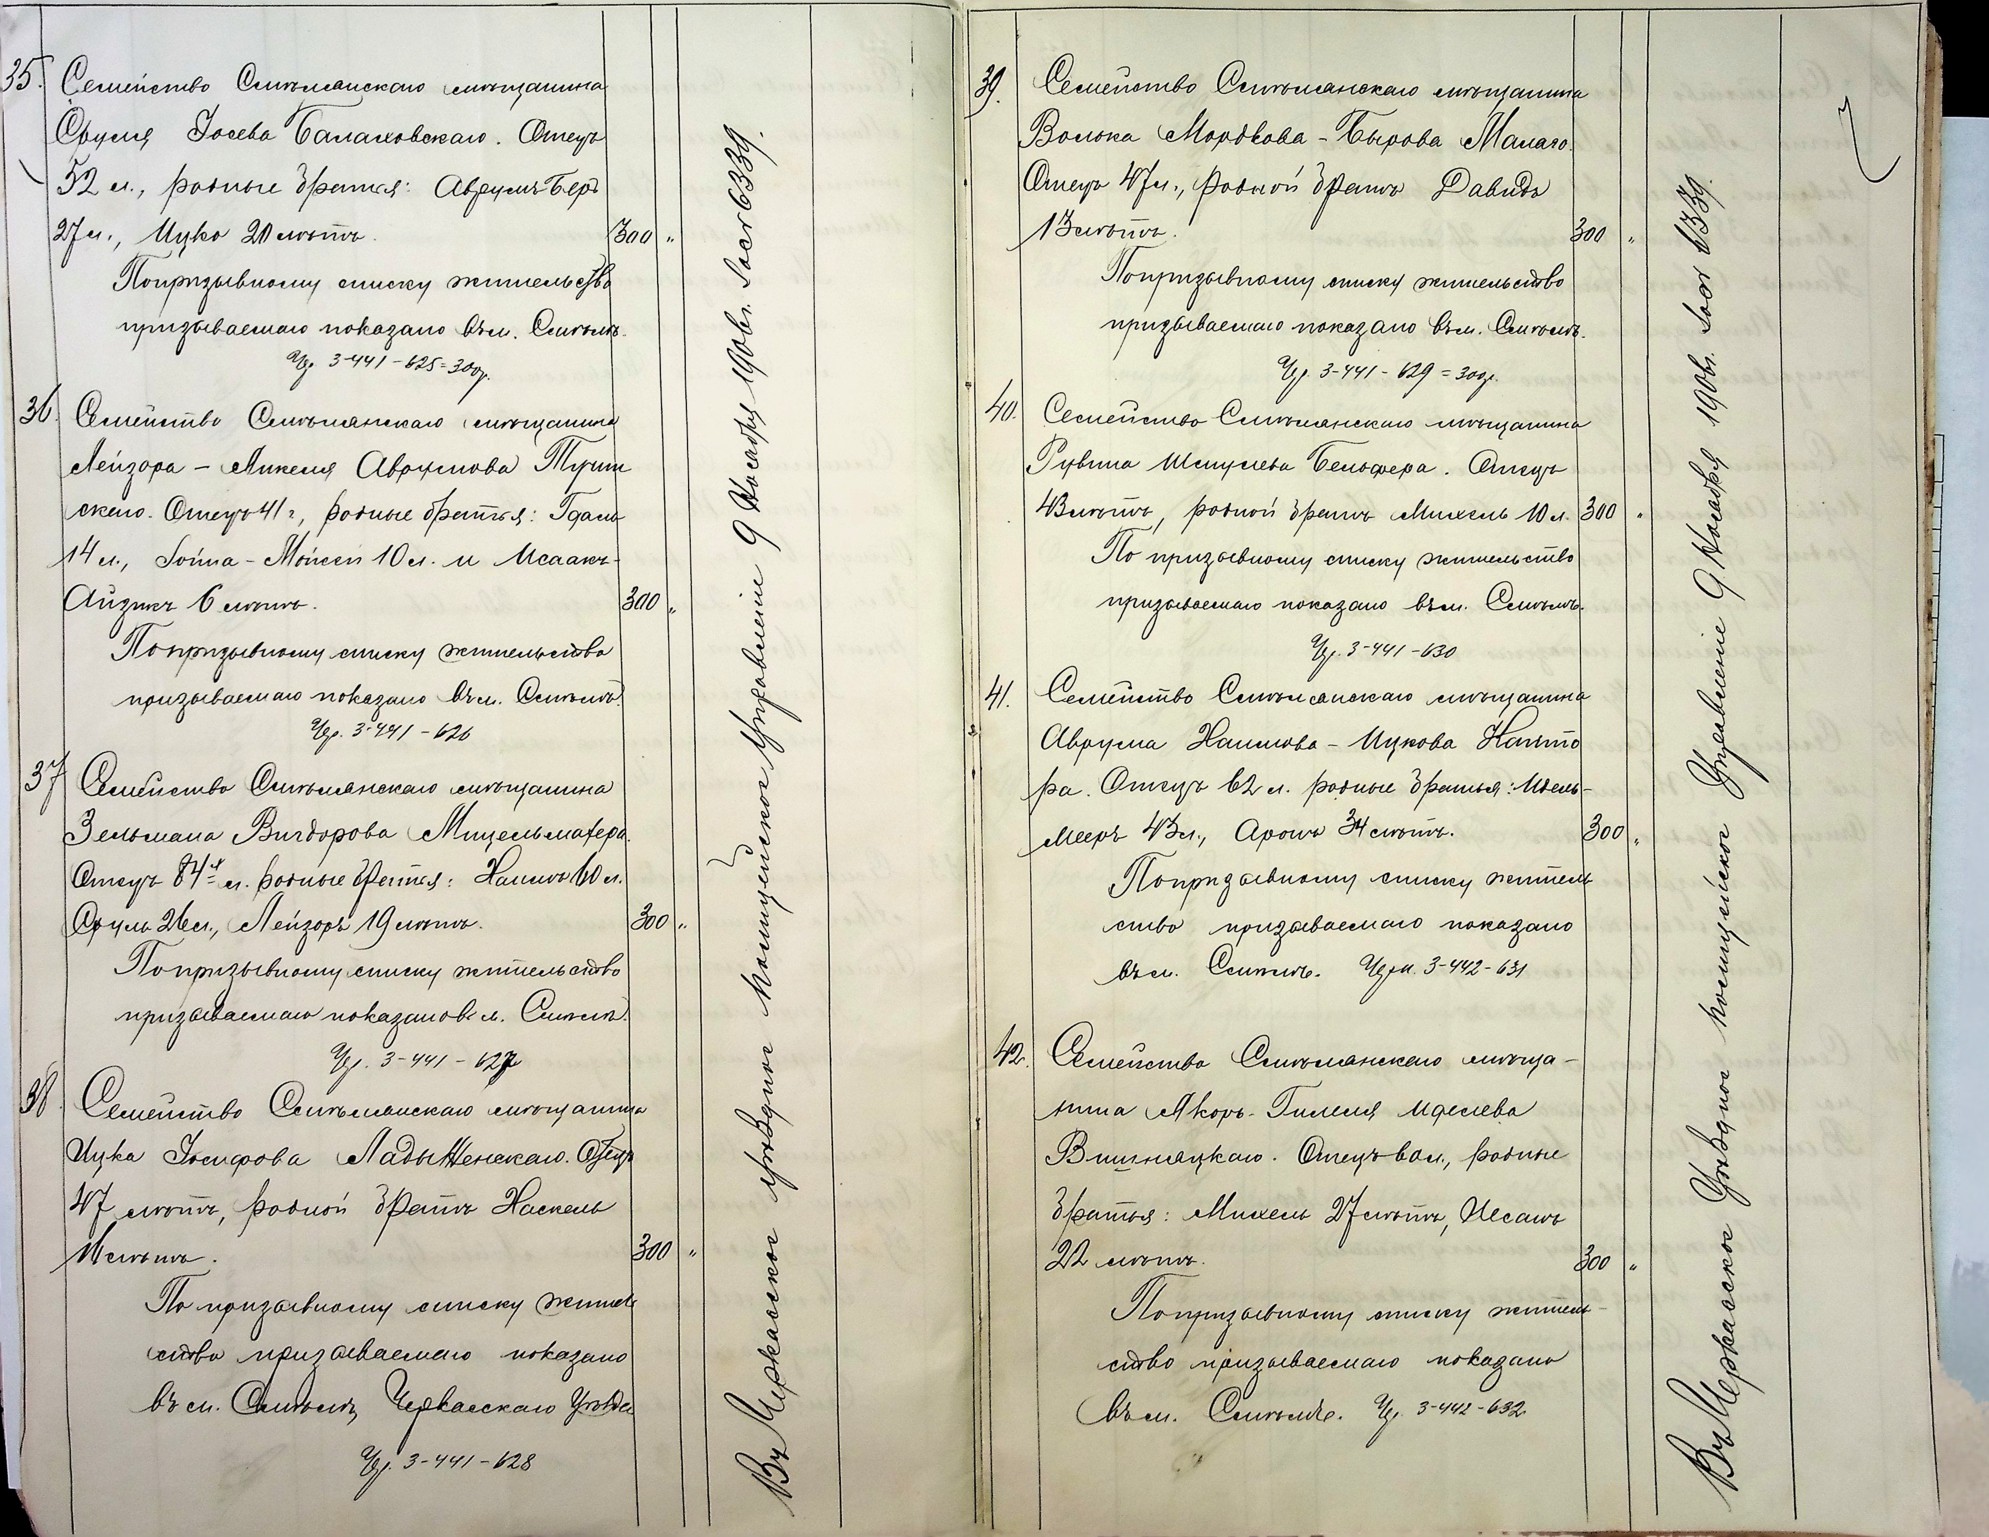 35. Семейство Смѣлянскаго мѣщанина
Сруля Іосева Балаховскаго. Отецъ
52 л., родные братья: Аврумъ-Беръ
27 л., Ицко 20 лѣтъ. 300 "
По призывному списку жительство
призываемаго показано въ м. Смѣлѣ.
Чер. 3-441-625=300р.
36. Семейство Смѣлянскаго мѣщанина
Лейзора - Микеля Аврумова Турин
скаго. Отецъ 41 г., родные братья: Гдаль
14 л., Мойсей 10 л. и Исаакъ-
Айзикъ 6 лѣтъ. 300 "
По призывному списку жительство
призываемаго показано въ м. Смѣлѣ.
Чер. 3-441-626
37 Семейство Смѣлянскаго мѣщанина
Зельмана Вигдорова Мицельмахера.
Отецъ 84 л. родные братья: Наимъ 60 л.
Сруль 26 л., Лейзоръ 19 лѣтъ. 300 "
По призывному списку жительство
призываемаго показано в м. Смѣлѣ.
Чер. 3-441-627
38. Семейство Смѣлянскаго мѣщанина
Ицка Іосифова Ладыженскаго. Отецъ
47 лѣтъ, родной братъ Хаскель
16 лѣтъ. 300 "
По призывному списку житель
ство призываемаго показано
въ м. Смѣлѣ, Черкасскаго уѣзда
Чер. 3-441-628
Въ Черкасское уѣздное полицейское управленіе 9 Ноября 190 6339.
39. Семейство Смѣлянскаго мѣщанина
Волька Мордкова-Бырова Малаго.
Отецъ 47 л., родной братъ Давидъ
13 лѣтъ. 300 "
По призывному списку жительство
призываемаго показано въ м. Смѣлѣ.
Чер. 3-441-629=300р.
40. Семейство Смѣлянскаго мѣщанина
Рувина Шмулева Бельфера. Отецъ
43 лѣтъ, родной братъ Михель 10 л. 300 "
По призывному списку жительство
призываемаго показано въ м. Смѣлѣ.
Чер. 3-441-630
41. Семейство Смѣлянскаго мѣщанина
Аврума Хаимова-ИцковаКанто
ра. Отецъ 62 л. родные братья: Идель-
Мееръ 43 л., Аронъ 34 лѣтъ. 300 "
По призывному списку житель
ство призываемаго показано
въ м. Смѣлѣ. Черк. 3-442-631
42. Семейство Смѣлянскаго мѣща-
нина Якоръ-Гилеля Иделева
Вишняцкаго. Отецъ 60 л., родные
братья: Михель 27 лѣтъ, Иесаль
22 лѣтъ. 300 "
По призывному списку житель-
ство призываемаго показано
въ м. Смѣлѣ. Чер. 3-442-632
Въ Черкасское уѣздное полицейское Управленіе 9 Ноября 190 6339.